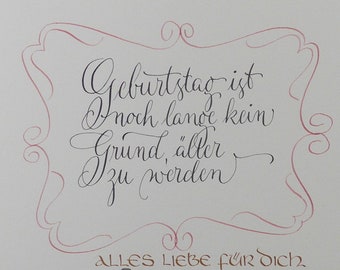 Geburtstag ist
noch lange kein
Grund, älter
zu werden
ALLES LIEBE FÜR DICH